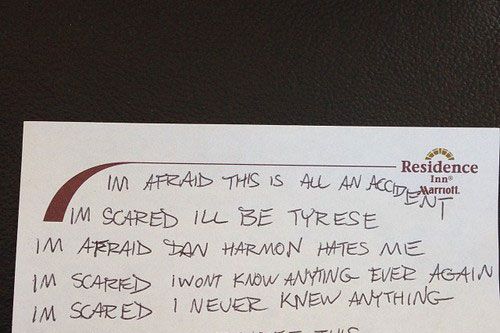 Residence
Inn®
Marriott
IM AFRAID THIS IS ALL AN ACCIDENT
IM SCARED ILL BE TYRESE
IM AFRAID DAN HARMON HATES ME
IM SCARED I WONT KNOW ANYTING EVER AGAIN
IM SCARED I NEVER KNEW ANYTHING
THIS